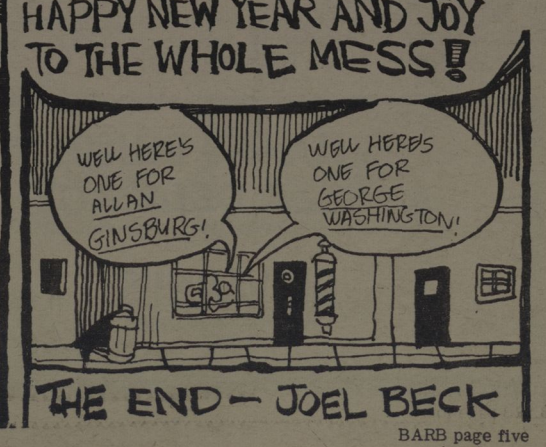 HAPPY NEW YEAR AND JOY
TO THE WHOLE MESS!
WELL HERE'S
ONE FOR
ALLAN
GINSBURG!
WELL HERE'S
ONE FOR
GEORGE
WASHINGTON!
THE END — JOEL BECK
BARB page five